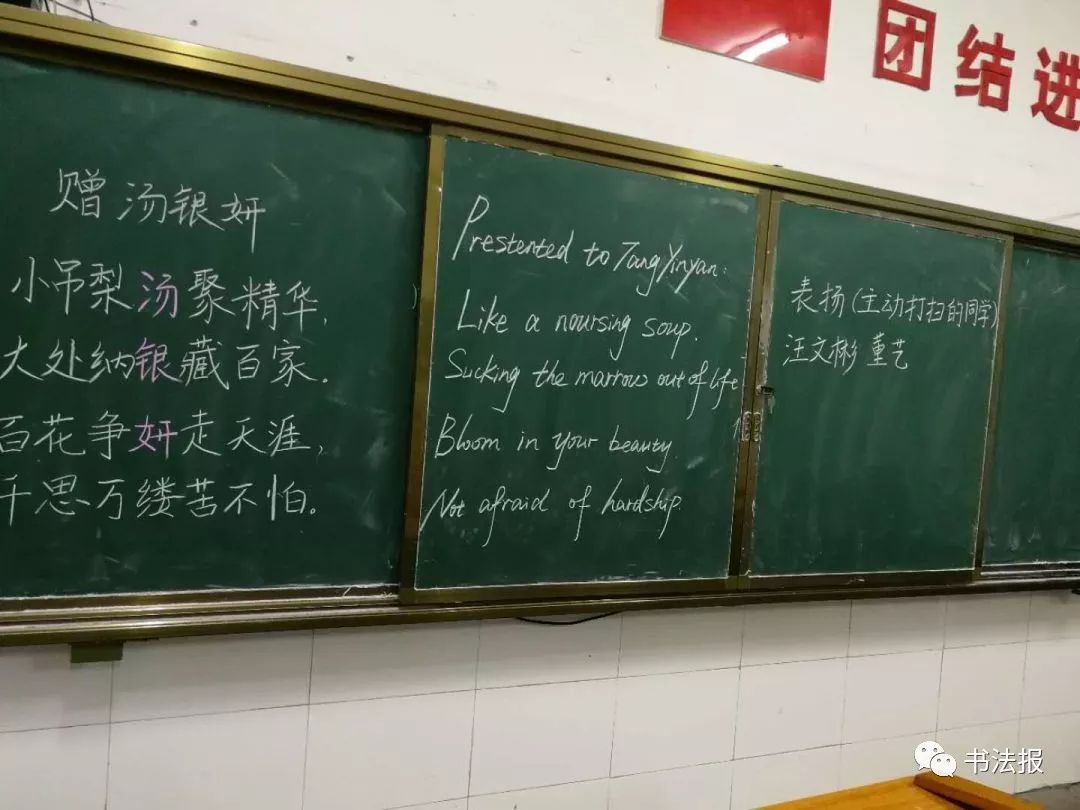 团结进
赠汤银妍
小吊梨汤聚精华,
大处纳银藏百家.
百花争妍走天涯,
千思万缕苦不怕.
Prestented to Tang Yinyan:
Like a noursing soup.
Sucking the marrow out of life
Bloom in your beauty.
Not afraid of hardship.
表扬(主动打扫的同学)
汪文彬 董艺
书法报